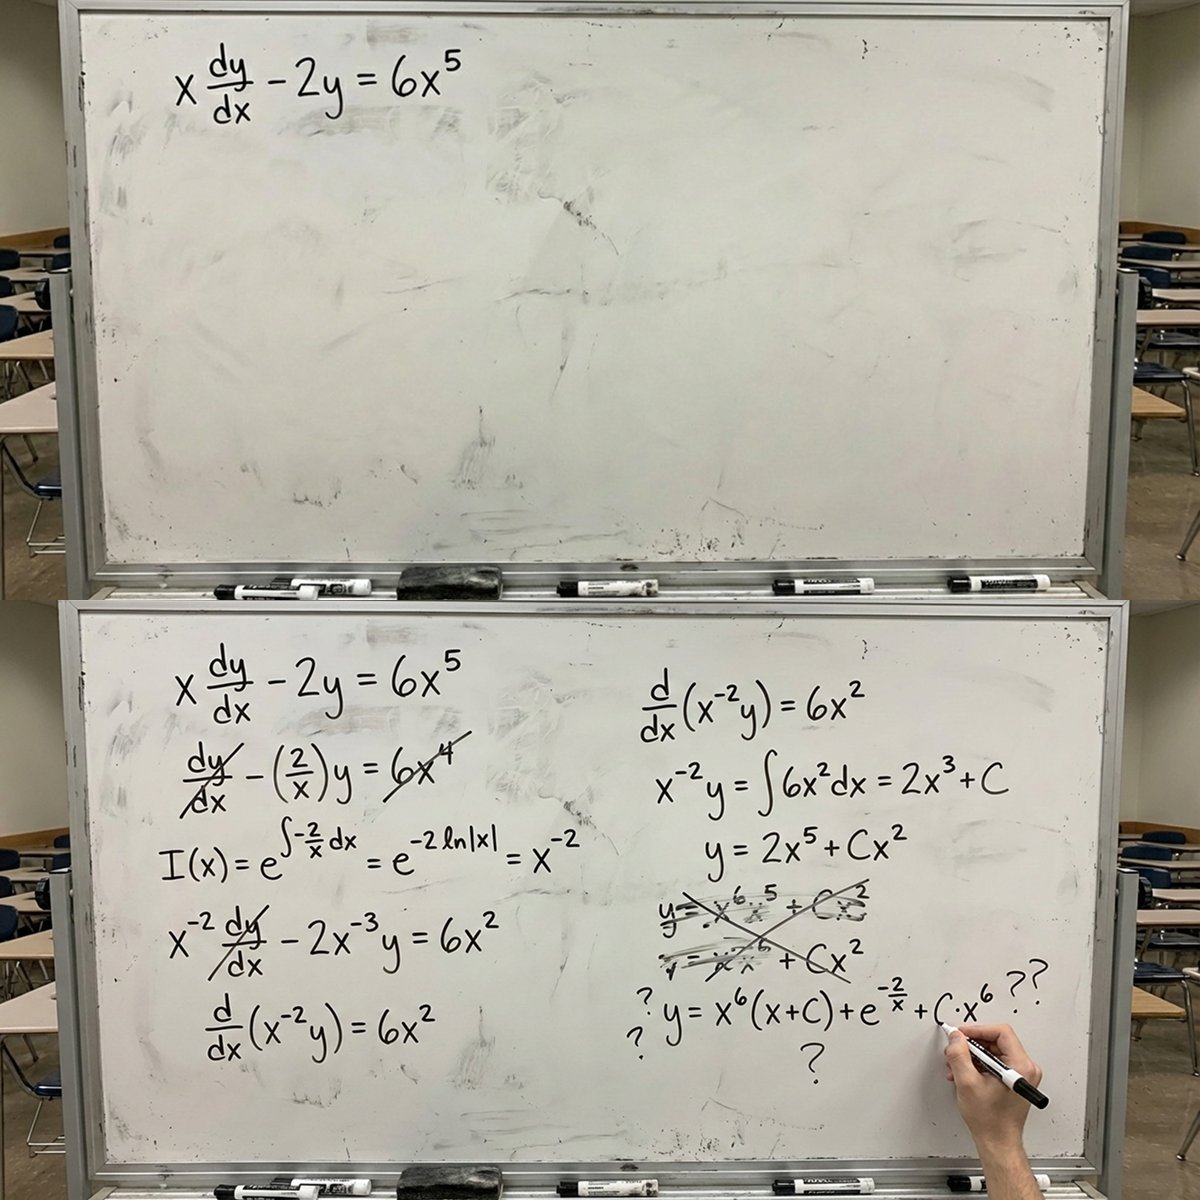 x dy/dx − 2y = 6x⁵
x dy/dx − 2y = 6x⁵
dy/dx − (2/x)y = 6x⁴
I(x) = e^(∫−2/x dx) = e^(−2 ln|x|) = x⁻²
x⁻² dy/dx − 2x⁻³y = 6x²
d/dx (x⁻²y) = 6x²
d/dx (x⁻²y) = 6x²
x⁻²y = ∫6x²dx = 2x³ + C
y = 2x⁵ + Cx²
y = x⁶ x⁵ + Cx²
+ Cx²
? ? y = x⁶(x+C) + e^(−2/x) + C·x⁶ ??
?